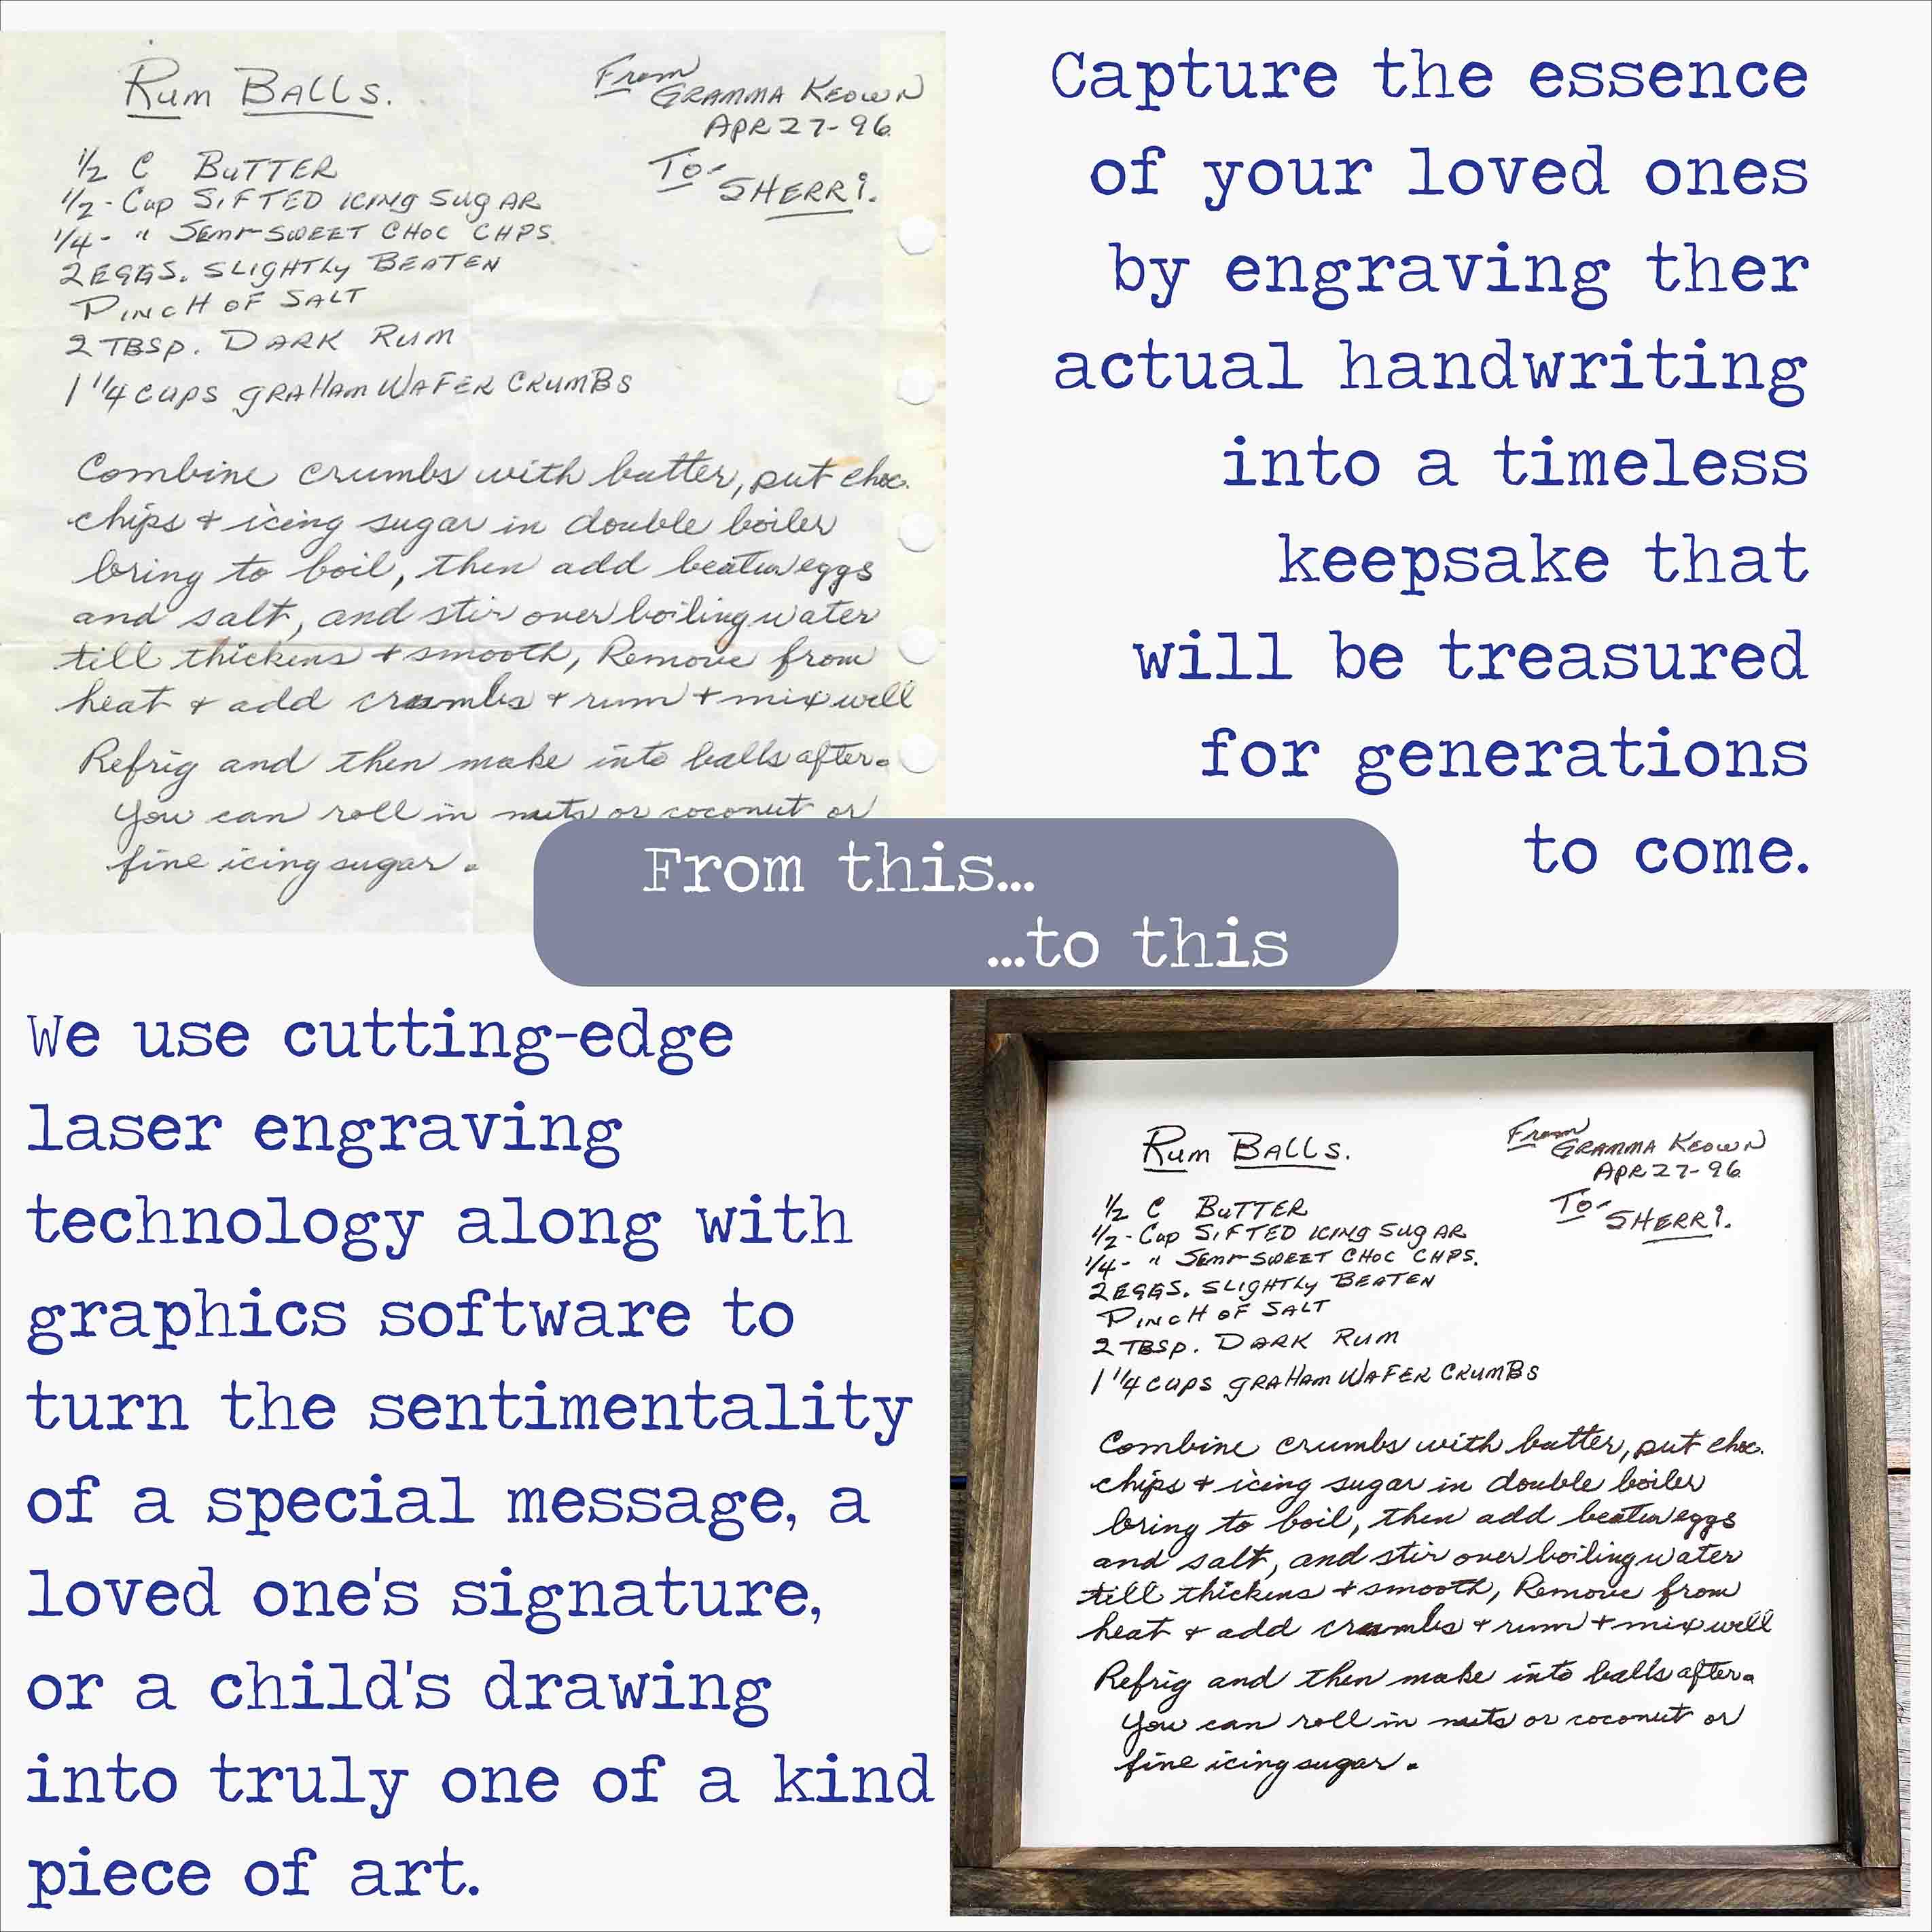 Rum Balls.
From
Gramma Keown
Apr 27-96
To-
Sherri.
1/2 C Butter
1/2 - Cup Sifted icing Sugar
1/4 - " Semi-Sweet Choc Chps.
2 Eggs. Slightly Beaten
Pinch of Salt
2 Tbsp. Dark Rum
1 1/4 cups graham Wafer Crumbs
Combine crumbs with butter, put choc.
chips + icing sugar in double boiler
bring to boil, then add beaten eggs
and salt, and stir over boiling water
till thickens + smooth, Remove from
heat + add crumbs + rum + mix well
Refrig and then make into balls after.
You can roll in nuts or coconut or
fine icing sugar.
Capture the essence
of your loved ones
by engraving ther
actual handwriting
into a timeless
keepsake that
will be treasured
for generations
to come.
From this...
...to this
We use cutting-edge
laser engraving
technology along with
graphics software to
turn the sentimentality
of a special message, a
loved one's signature,
or a child's drawing
into truly one of a kind
piece of art.
Rum Balls.
From
Gramma Keown
Apr 27-96
To-
Sherri.
1/2 C Butter
1/2 - Cup Sifted icing Sugar
1/4 - " Semi-Sweet Choc Chps.
2 Eggs. Slightly Beaten
Pinch of Salt
2 Tbsp. Dark Rum
1 1/4 cups graham Wafer Crumbs
Combine crumbs with butter, put choc.
chips + icing sugar in double boiler
bring to boil, then add beaten eggs
and salt, and stir over boiling water
till thickens + smooth, Remove from
heat + add crumbs + rum + mix well
Refrig and then make into balls after.
You can roll in nuts or coconut or
fine icing sugar.